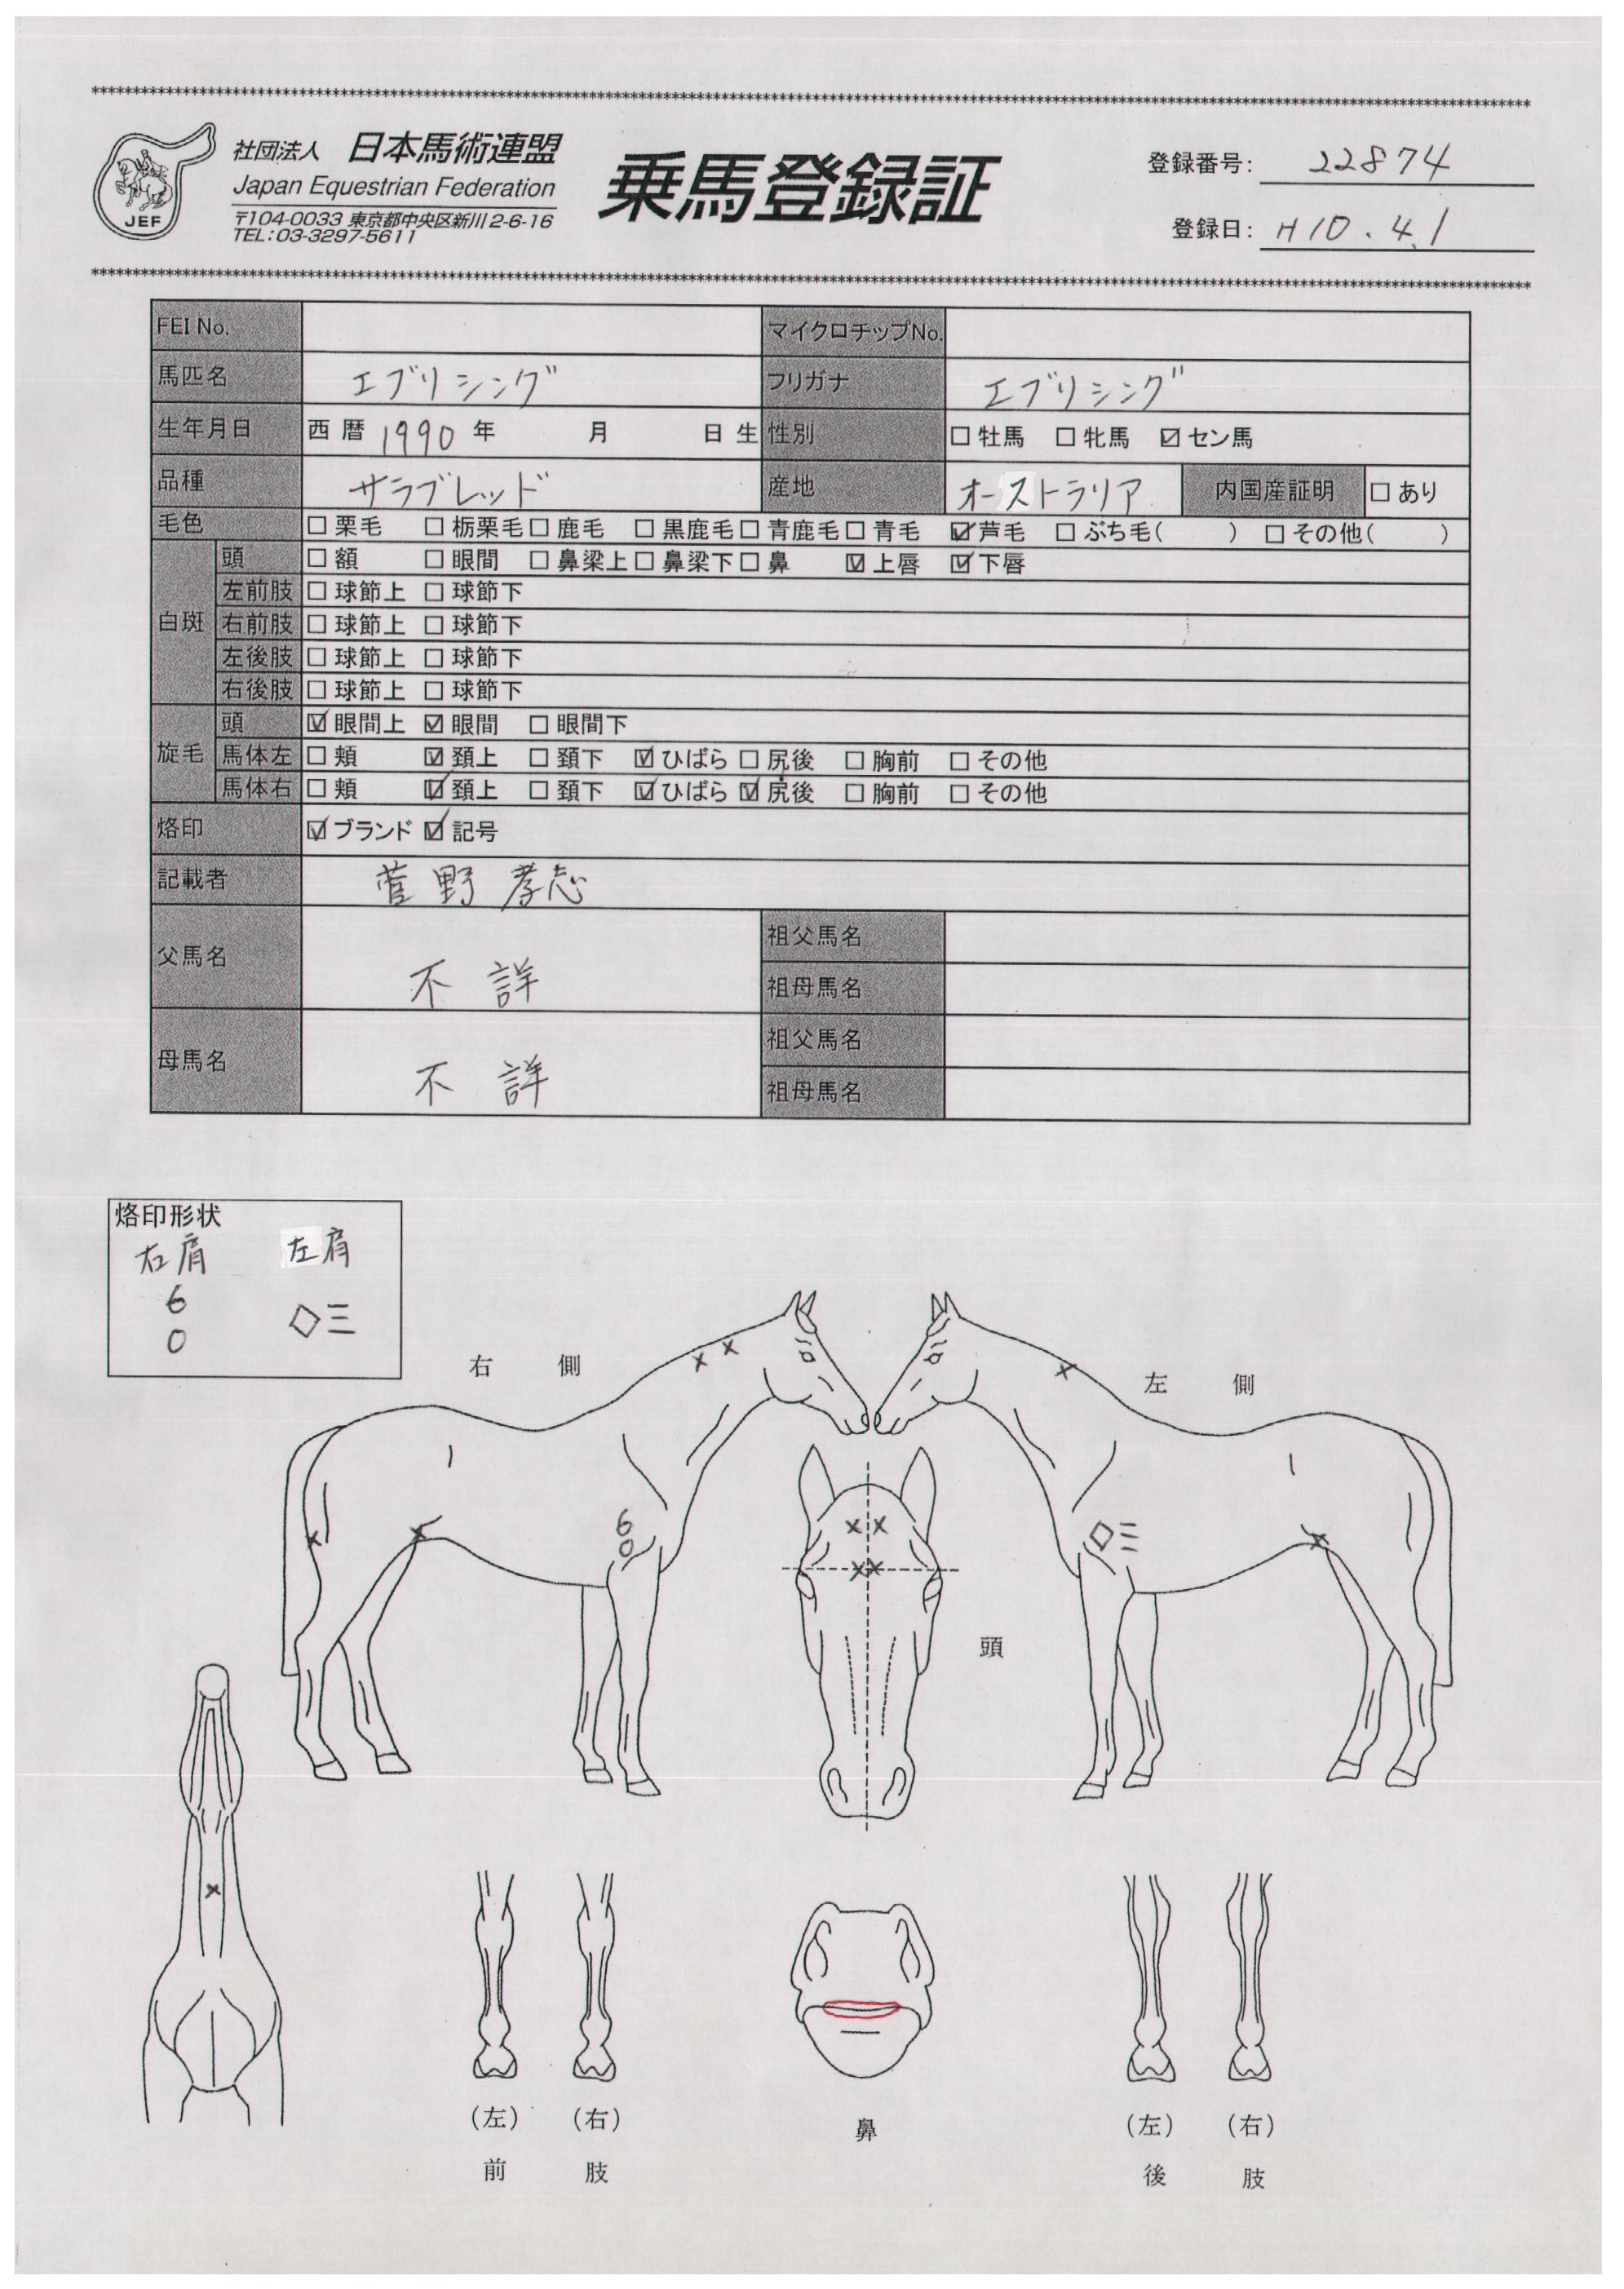 ****************************************************************
社団法人 日本馬術連盟
Japan Equestrian Federation
〒104-0033 東京都中央区新川2-6-16
TEL:03-3297-5611
JEF
乗馬登録証
登録番号: 22874
登録日: H10.4.1
****************************************************************
FEI No. マイクロチップNo.
馬匹名 エブリシング フリガナ エブリシング
生年月日 西暦 1990 年 月 日生 性別 □牡馬 □牝馬 ☑セン馬
品種 サラブレッド 産地 オーストラリア 内国産証明 □あり
毛色 □栗毛 □栃栗毛 □鹿毛 □黒鹿毛 □青鹿毛 □青毛 ☑芦毛 □ぶち毛( ) □その他( )
白斑 頭 □額 □眼間 □鼻梁上 □鼻梁下 □鼻 ☑上唇 ☑下唇
左前肢 □球節上 □球節下
右前肢 □球節上 □球節下
左後肢 □球節上 □球節下
右後肢 □球節上 □球節下
旋毛 頭 ☑眼間上 ☑眼間 □眼間下
馬体左 □頬 ☑頚上 □頚下 ☑ひばら □尻後 □胸前 □その他
馬体右 □頬 ☑頚上 □頚下 ☑ひばら ☑尻後 □胸前 □その他
烙印 ☑ブランド ☑記号
記載者 菅野孝志
父馬名 不詳 祖父馬名
祖母馬名
母馬名 不詳 祖父馬名
祖母馬名
烙印形状
右肩 左肩
6
0 ◇三
右側 左側
6
0 ◇三
頭
(左) (右) 鼻 (左) (右)
前肢 後肢